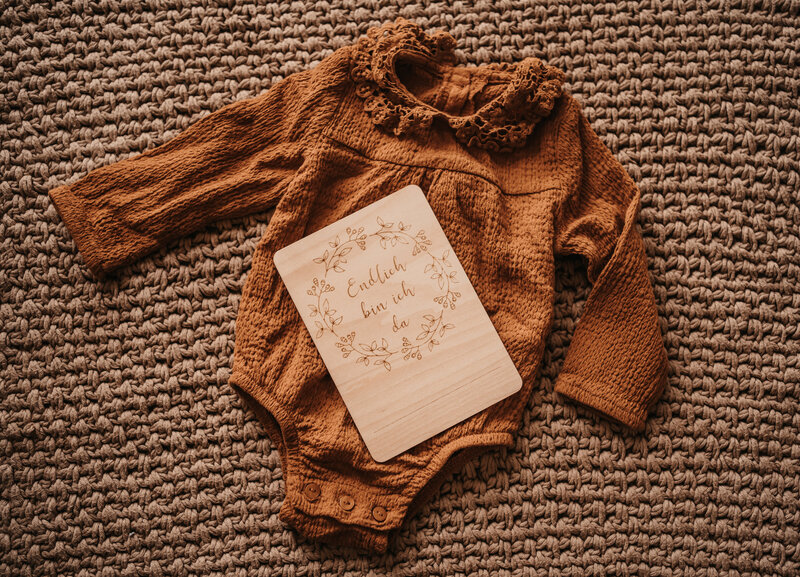 Endlich
bin ich
da